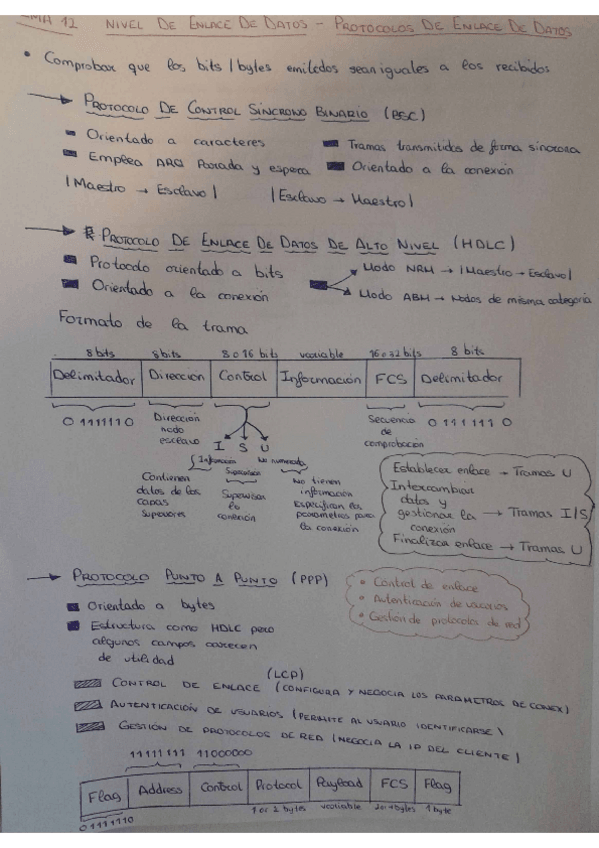 TEMA 12 NIVEL DE ENLACE DE DATOS - PROTOCOLOS DE ENLACE DE DATOS
• Comprobar que los bits/bytes emitidos sean iguales a los recibidos
→ PROTOCOLO DE CONTROL SÍNCRONO BINARIO (BSC)
Orientado a caracteres
Tramas transmitidas de forma síncrona
Emplea ARQ Parada y espera
Orientado a la conexión
|Maestro → Esclavo| |Esclavo → Maestro|
→ PROTOCOLO DE ENLACE DE DATOS DE ALTO NIVEL (HDLC)
Protocolo orientado a bits
Modo NRM → |Maestro → Esclavo|
Orientado a la conexión
Modo ABM → Nodos de misma categoría
Formato de la trama
8 bits 8 bits 8 o 16 bits variable 16 o 32 bits 8 bits
Delimitador Dirección Control Información FCS Delimitador
0 1111110
Dirección
nodo
esclavo
I S U
Información
Supervisión
No numerada
Secuencia
de
comprobación
0 111111 0
Contienen
datos de las
capas
superiores
Supervisar
la
conexión
No tienen
información
Especifican los
parámetros para
la conexión
Establecer enlace → Tramas U
Intercambiar
datos y
gestionar la → Tramas I/S
conexión
Finalizar enlace → Tramas U
→ PROTOCOLO PUNTO A PUNTO (PPP)
• Control de enlace
• Autenticación de usuarios
• Gestión de protocolos de red
Orientado a bytes
Estructura como HDLC pero
algunos campos carecen
de utilidad
(LCP)
CONTROL DE ENLACE (CONFIGURA Y NEGOCIA LOS PARAMETROS DE CONEX)
AUTENTICACIÓN DE USUARIOS (PERMITE AL USUARIO IDENTIFICARSE)
GESTIÓN DE PROTOCOLOS DE RED (NEGOCIA LA IP DEL CLIENTE)
11111111 11000000
Flag Address Control Protocol Payload FCS Flag
01111110
1 or 2 bytes variable 2 or 4 bytes 1 byte